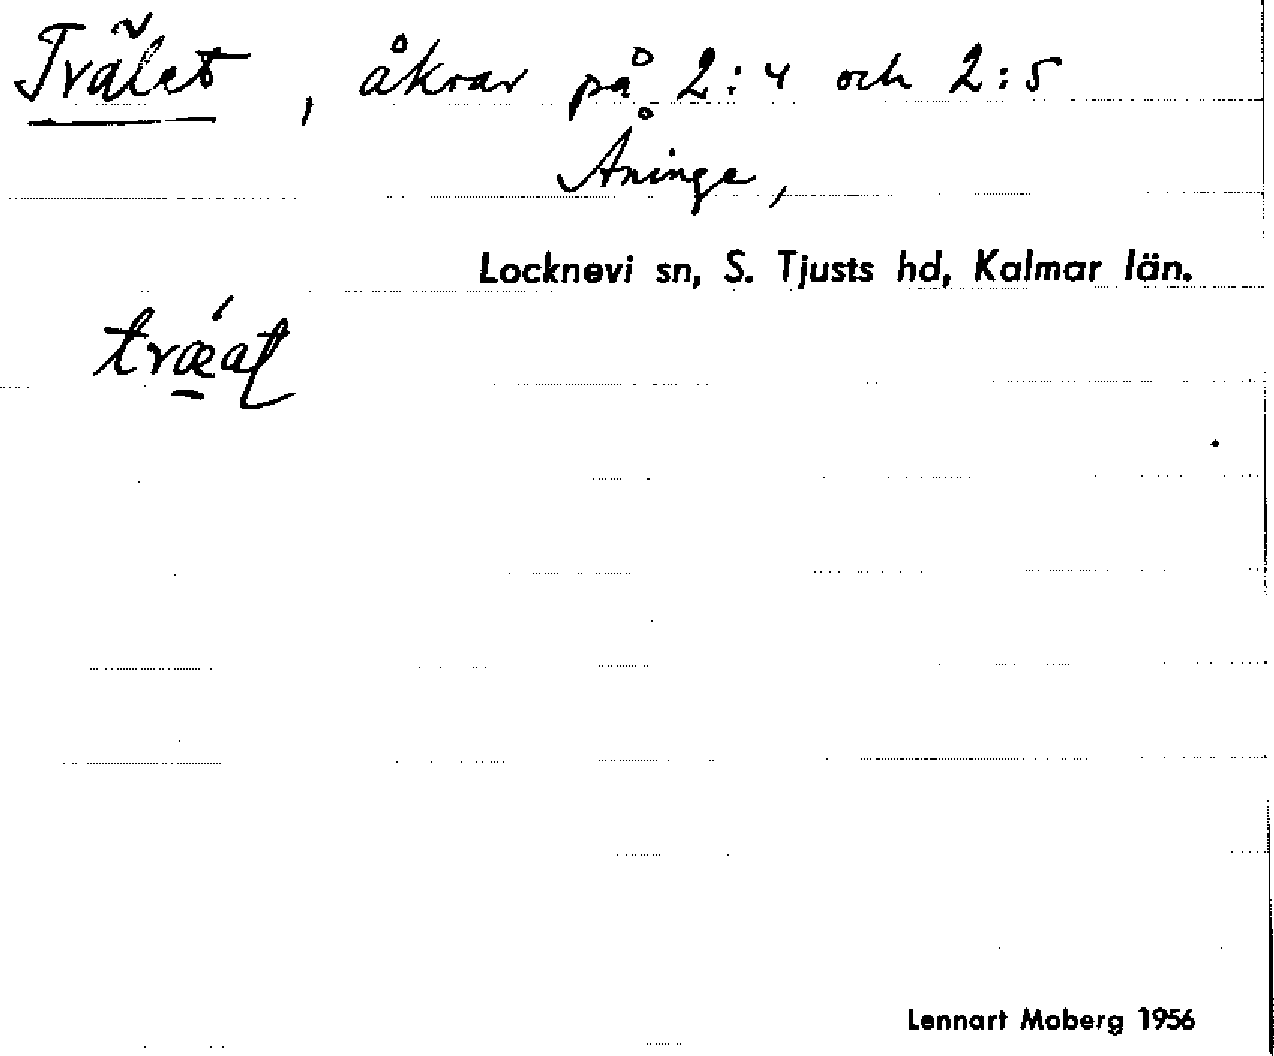 Trälet, åkrar på 2:4 och 2:5
Åninge,
Locknevi sn, S. Tjusts hd, Kalmar län.
Lennart Moberg 1956